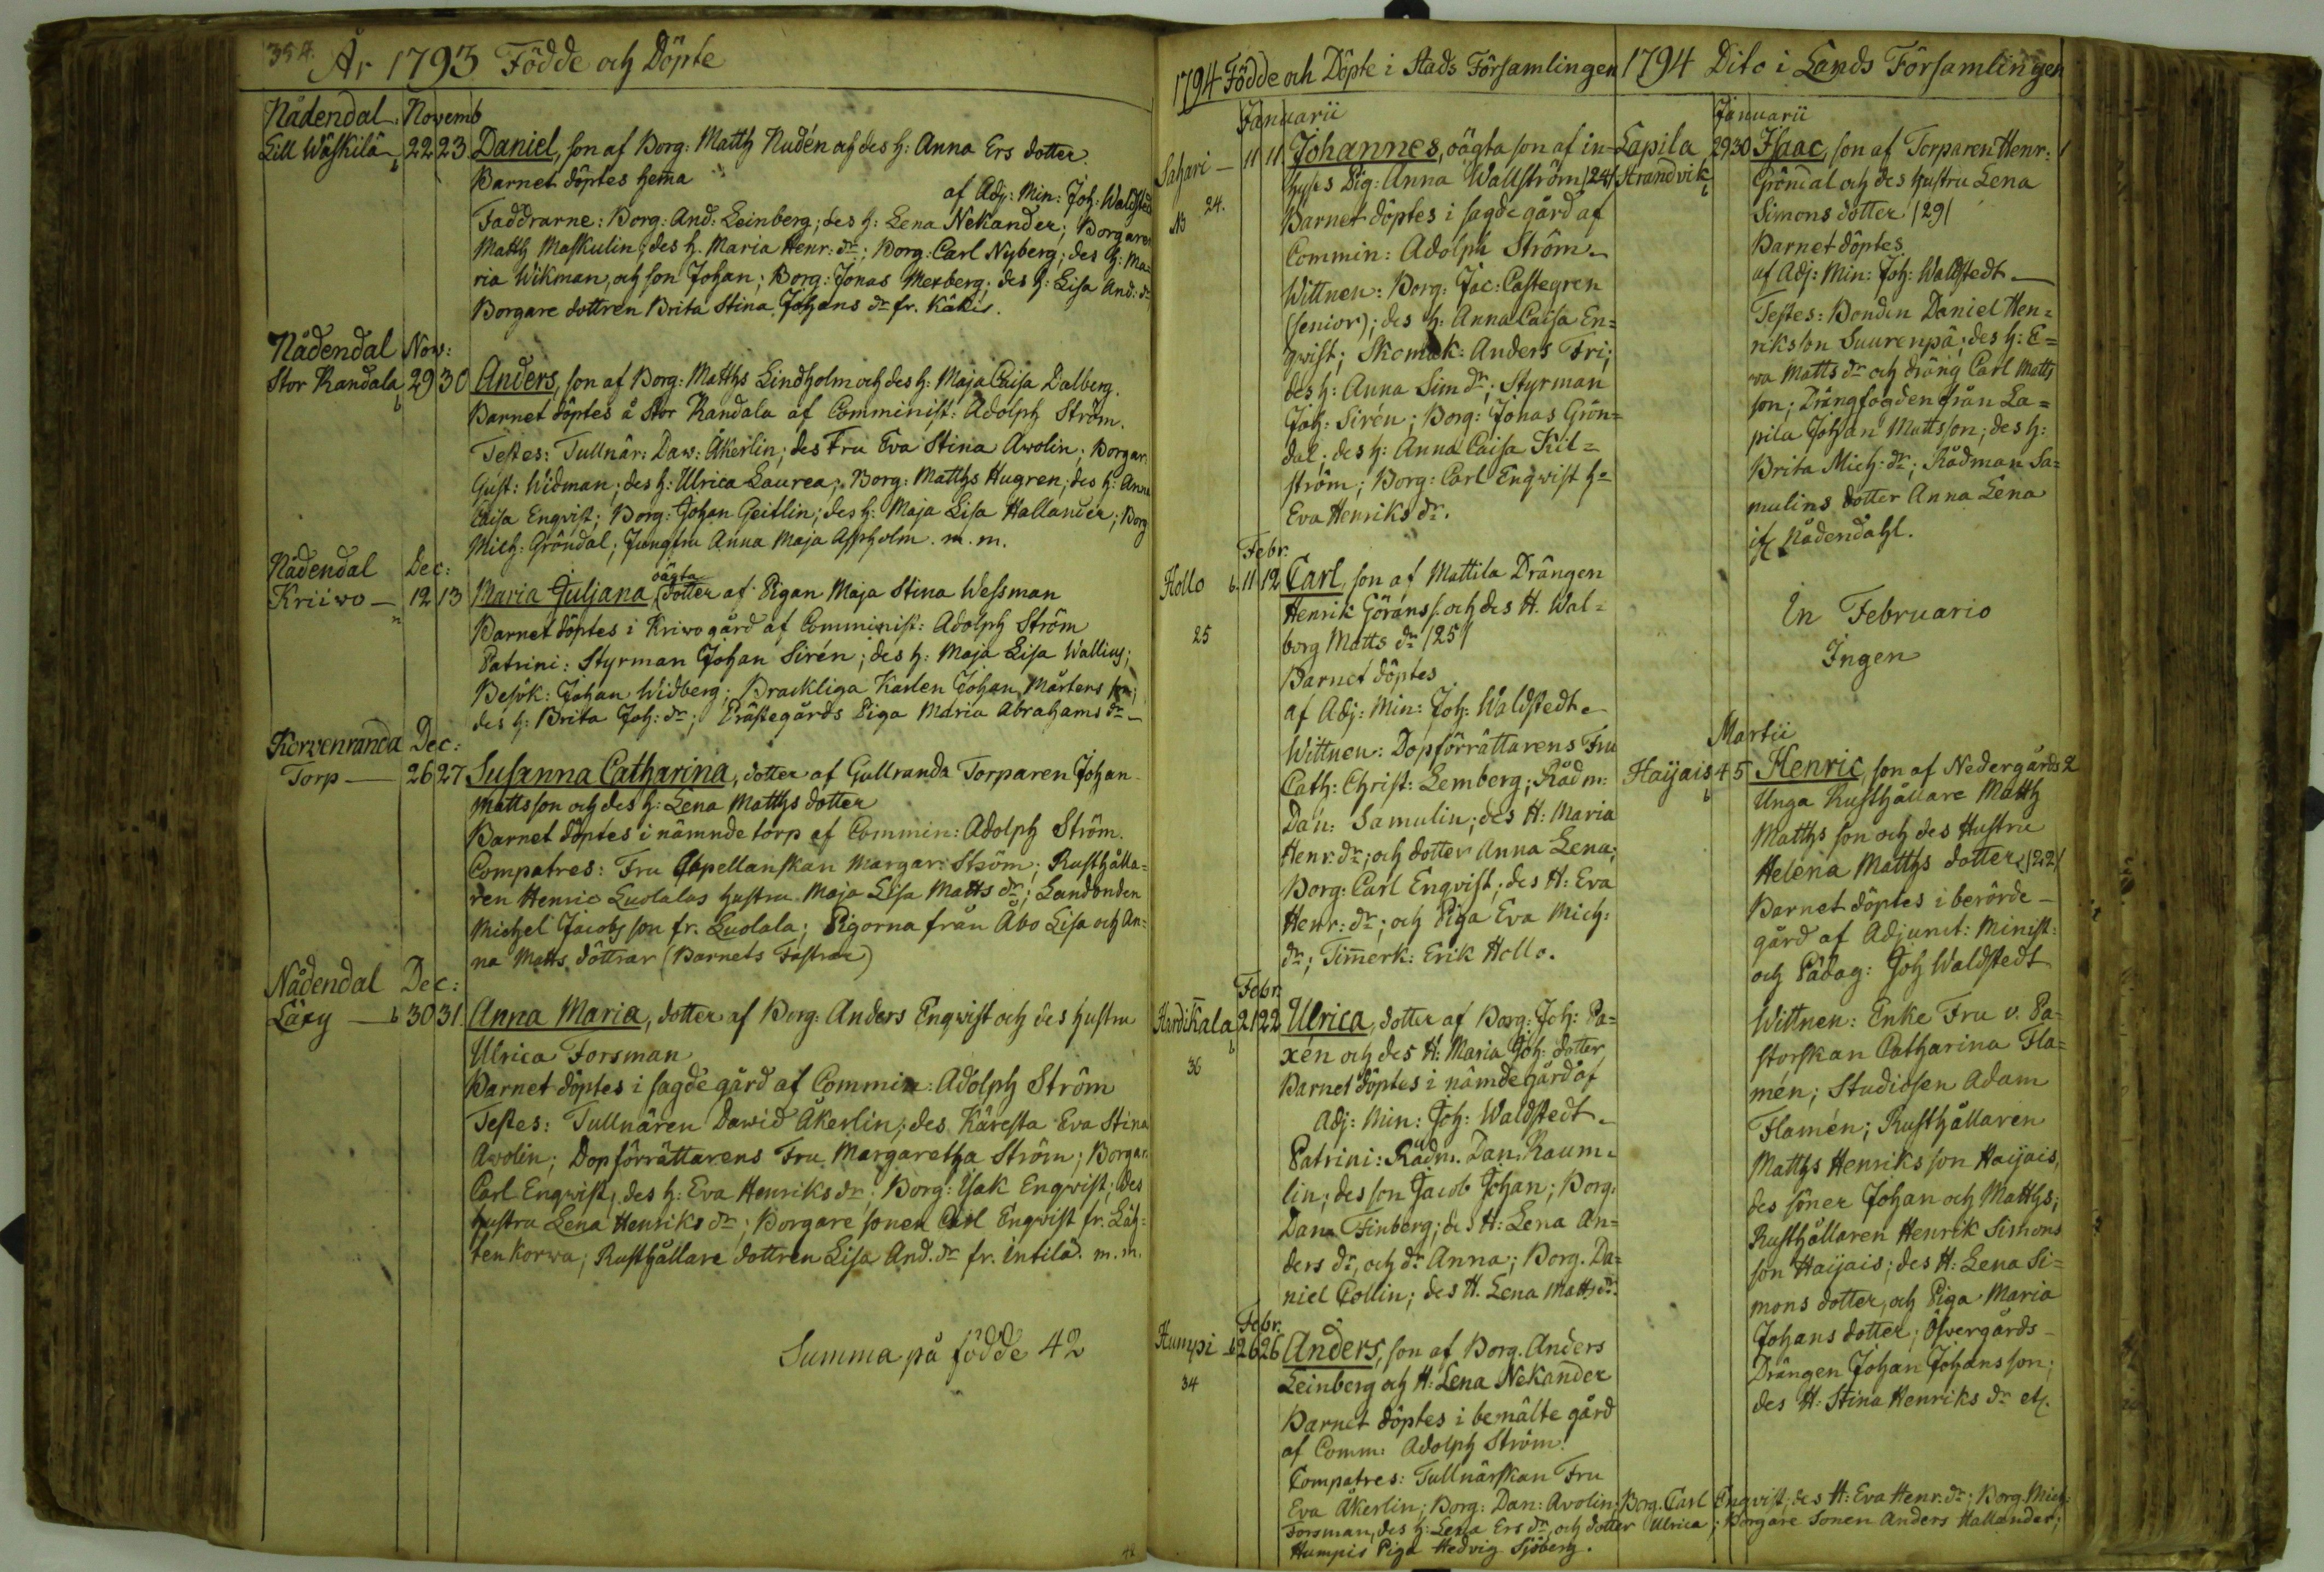 354.
År 1793 Födde och Döpte
Nådendal. Novemb
Lill Wäskilä 22 23 Daniel, son af Borg: Matth Nudén och des h: Anna Ers dotter.
b
Barnet döptes hema
af Adj: Min: Joh: Waldstedt
Faddrarne: Borg: And: Leinberg; des h: Lena Nekander; Borgaren
Matth Maskulin; des h. Maria Henr: dr; Borg: Carl Nyberg; des h: Ma=
ria Wikman, och son Johan; Borg: Jonas Mexberg; des h: Lisa And: dr
Borgare dottren Brita Stina Johans dr fr. Käkis.
Nådendal Nov:
Stor Kandala 29 30 Anders, son af Borg: Matths Lindholm och des h: Maja Caisa Dalberg.
b
Barnet döptes å Stor Kandala af Comminist: Adolph Ström.
Testes: Tullnär: Daw: Åkerlin; des Fru Eva Stina Awolin; Borgar:
Gust: Widman; des h: Ulrica Laurea; Borg: Matths Hugren; des h: Anna
Caisa Enqvist; Borg: Johan Geitlin; des h: Maja Lisa Hallander; Borg
Mich: Gröndal; Jungfru Anna Maja Aspholm. m. m.
Nådendal Dec:
oägta
Kriivo — 12 13 Maria Juljana dotter af Pigan Maja Stina Wessman
Barnet döptes i Krivo gård af Comminist: Adolph Ström
Patrini: Styrman Johan Sirén; des h: Maja Lisa Wallius;
Besök: Johan Widberg; Brackliga Karlen Johan Mårtens son;
des h: Brita Joh: dr; Prästegårds Piga Maria Abrahams dr —
Korvenranda Dec:
Torp — 26 27 Susanna Catharina, dotter af Gullranda Torparen Johan
Mattsson och des h: Lena Matths dotter
Barnet döptes i nämnde torp af Commin: Adolph Ström.
Compatres: Fru Capellanskan Margar: Ström; Rusthålla=
ren Henric Luolalas hustru Maja Lisa Matts dr; Landbonden
Michel Jacobs son fr. Luolala; Pigorna från Åbo Lisa och An=
na Matts döttrar (Barnets Fastrar)
Nådendal Dec:
Läxy — b 30 31. Anna Maria, dotter af Borg: Anders Enqvist och des hustru
Ulrica Forsman
Barnet döptes i sagde gård af Commin: Adolph Ström
Testes: Tullnären Dawid Åkerlin; des Käresta Eva Stina
Awolin; Dopförrättarens Fru Margaretha Ström; Borgar.
Carl Enqvist, des h: Eva Henriks dr; Borg: Isak Enqvist; des
hustru Lena Henriks dr; Borgare sonen Carl Enqvist fr. Läh=
tenkorva; Rusthållare dottren Lisa And. dr fr. Intilä. m. m.
Summa på födde 42
1794 Födde och Döpte i Stads Församlingen
Januarii
Sahari — 11 11 Johannes, oägta son af in=
hyses Pig: Anna Wallström /24/
24.
Barnet döptes i sagde gård af
Commin: Adolph Ström.
Wittnen: Borg: Jac: Castegren
(senior); des h: Anna Caisa En=
qwist; Skomak: Anders Fri;
des h: Anna Sim dr; Styrman
Joh: Sirén; Borg: Jonas Grön=
dal; des h: Anna Caisa Kil=
ström; Borg: Carl Enqvist h=
Eva Henriks dr.
Febr:
Hollo b. 11 12 Carl, son af Mattila Drängen
Henrik Görans s. och des H. Wal=
25
borg Matts dr /25/
Barnet döptes
af Adj: Min: Joh: Waldstedt.
Wittnen: Dopförrättarens Fru
Cath: Christ: Lemberg; Rådm:
Dan: Samulin; des H: Maria
Henr: dr; och dotter Anna Lena;
Borg: Carl Enqvist; des H: Eva
Henr: dr; och Piga Eva Mich:
dr; Timerk: Erik Hollo.
Febr:
Kardikala 21 22 Ulrica, dotter af Borg: Joh: Pa=
b
xén och des H: Maria Joh: dotter
36
Barnet döptes i nämde gård af
Adj: Min: Joh: Waldstedt.
Patrini: Rådm. Dan: Raum=
lin; des son Jacob Johan; Borg:
Dan. Finberg; des H: Lena An=
ders dr, och dr Anna; Borg. Da=
niel Collin; des H. Lena Matts dr
Febr:
Humpi b 26 26 Anders, son af Borg. Anders
34
Leinberg och H: Lena Nekander
Barnet döptes i bemälte gård
af Comm: Adolph Ström.
Compatres: Tullnärskan Fru
Eva Åkerlin; Borg: Dan: Avolin; Borg. Carl Enqvist; des H: Eva Henr: dr; Borg. Mich:
Forsman, des h: Lena Ers dr, och dotter Ulrica; Borgare Sonen Anders Hallander;
Humpis Piga Hedvig Sjöberg.
1794 Dito i Lands Församlingen
Januarii
Lapila 29 30 Isaac, son af Torparen Henr: 1
Strandvik
b
Gröndal och des hustru Lena
Simons dotter /29/
Barnet döptes
af Adj: Min: Joh: Waldstedt —
Testes: Bonden Daniel Hen=
riksson Suurenpä; des h: E=
va Matts dr och dräng Carl Matts
son; Drängfogden från La=
pila Johan Mattsson; des h:
Brita Mich: dr; Rådman Sa=
mulins dotter Anna Lena
Nådendahl.
In Februario
Ingen
Martii
Haijais 4 5 Henric, son af Nedergårds 2
b
Unga Rusthållare Matth
Matths son och des Hustru
Helena Matths dotter /22/
Barnet döptes i berörde
gård af Adjunct: Minist:
och Pädag: Joh Waldstedt
Wittnen: Enke Fru v. Pa=
storskan Catharina Fla=
mén; Studiosen Adam
Flamén; Rusthållaren
Matths Henriks son Haijais,
des söner Johan och Matths;
Rusthållaren Henrik Simons
son Haijais; des H: Lena Si=
mons dotter, och Piga Maria
Johans dotter; Öfvergårds
Drängen Johan Johans son;
des H: Stina Henriks dr etc.